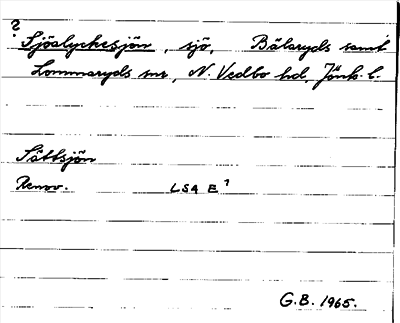 ?
Sjöalyckesjön, sjö, Bälaryds samt
Lommaryds snr, N. Vedbo hd, Jönk. l.
Sättsjön
Renov. LSA E⁷
G.B. 1965.